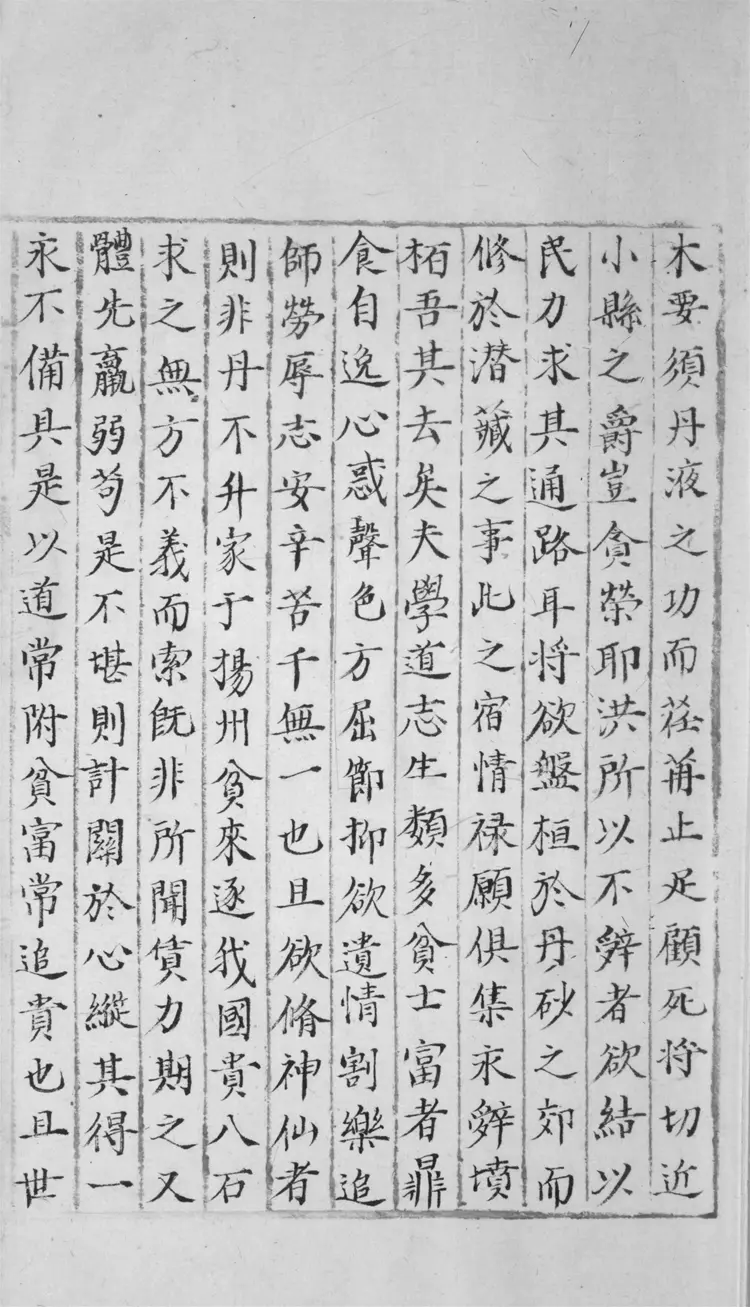 木要須丹液之功而荏苒止足顧死将切近
小縣之爵豈貪榮耶洪所以不辤者欲結以
民力求其通路耳将欲盤桓於丹砂之郊而
修於潜藏之事此之宿情禄願俱集永辤墳
栢吾其去矣夫學道志生類多貧士富者鼎
食自逸心惑聲色方屈節抑欲遺情割樂追
師勞辱志安辛苦千無一也且欲脩神仙者
則非丹不升家于揚州貧來逐我國貴八石
求之無方不義而索旣非所聞債力期之又
體先羸弱苟是不堪則計關於心縱其得一
永不備具是以道常附貧富常追貴也且世